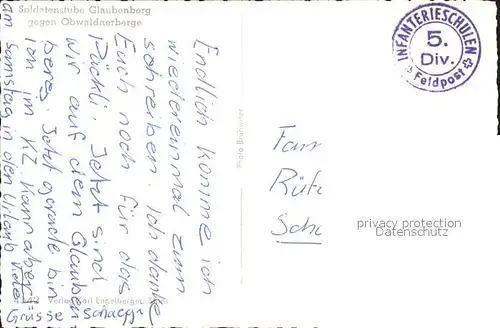 Soldatenstube Glaubenberg
gegen Obwaldnerberge
Endlich komme ich
wiedereinmal zum
schreiben. Ich danke
Euch noch für das
Päckli. Jetzt sind
wir auf dem Glauben
berg. Jetzt gerade bin
ich im KZ. Kann aber
am Samstag in den Urlaub
Viele
Grüsse
Photo Brunwinter
Verlag Karl Engelberger,
INFANTERIESCHULEN
5.
Div.
Feldpost
Fam
privacy protection
DAMATRIEMER.DE